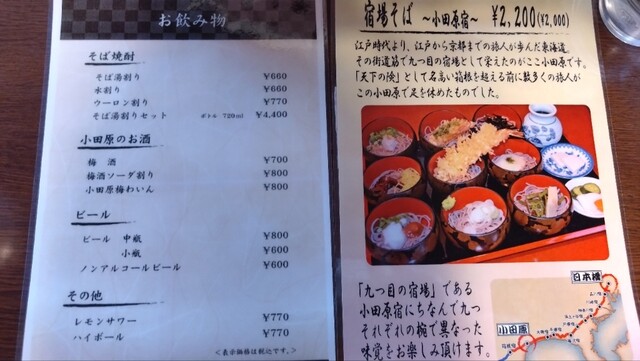 お飲み物
そば焼酎
そば湯割り ¥660
水割り ¥660
ウーロン割り ¥770
そば湯割りセット ボトル 720ml ¥4,400
小田原のお酒
梅 酒 ¥700
梅酒ソーダ割り ¥800
小田原梅わいん ¥800
ビール
ビール 中瓶 ¥800
小瓶 ¥600
ノンアルコールビール ¥600
その他
レモンサワー ¥770
ハイボール ¥770
<表示価格は税込です。>
宿場そば ～小田原宿～ ¥2,200(¥2,000)
江戸時代より、江戸から京都までの旅人が歩んだ東海道。
その街道筋で九つ目の宿場として栄えたのがここ小田原です。
「天下の険」として名高い箱根を超える前に数多くの旅人が
この小田原で足を休めたものでした。
「九つ目の宿場」である
小田原宿にちなんで九つ
それぞれの椀で異なった
味覚をお楽しみ頂けます
日本橋
小田原